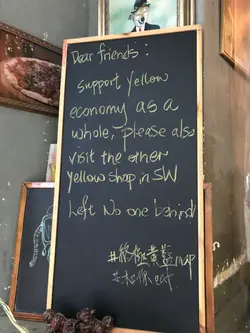 Dear friends :
Support Yellow
economy as a
whole, please also
visit the other
yellow shop in SW
Left No one behind!
#終極黃藍map
#和你eat